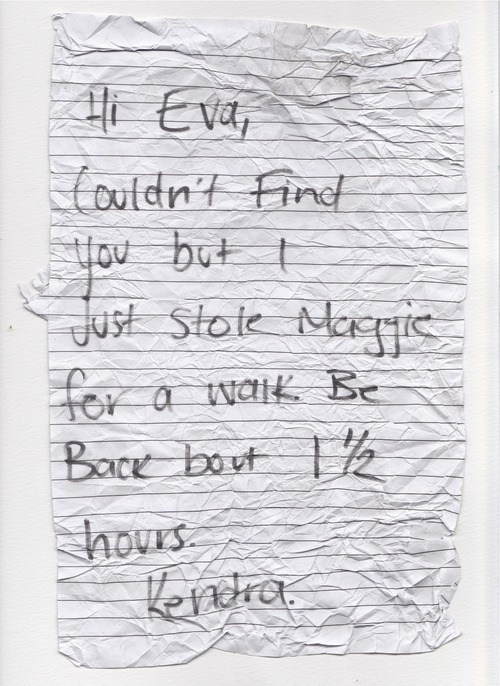 Hi Eva,
Couldn't Find
you but I
Just Stole Maggie
for a walk. Be
Back bout 1 1/2
hours.
Kendra.